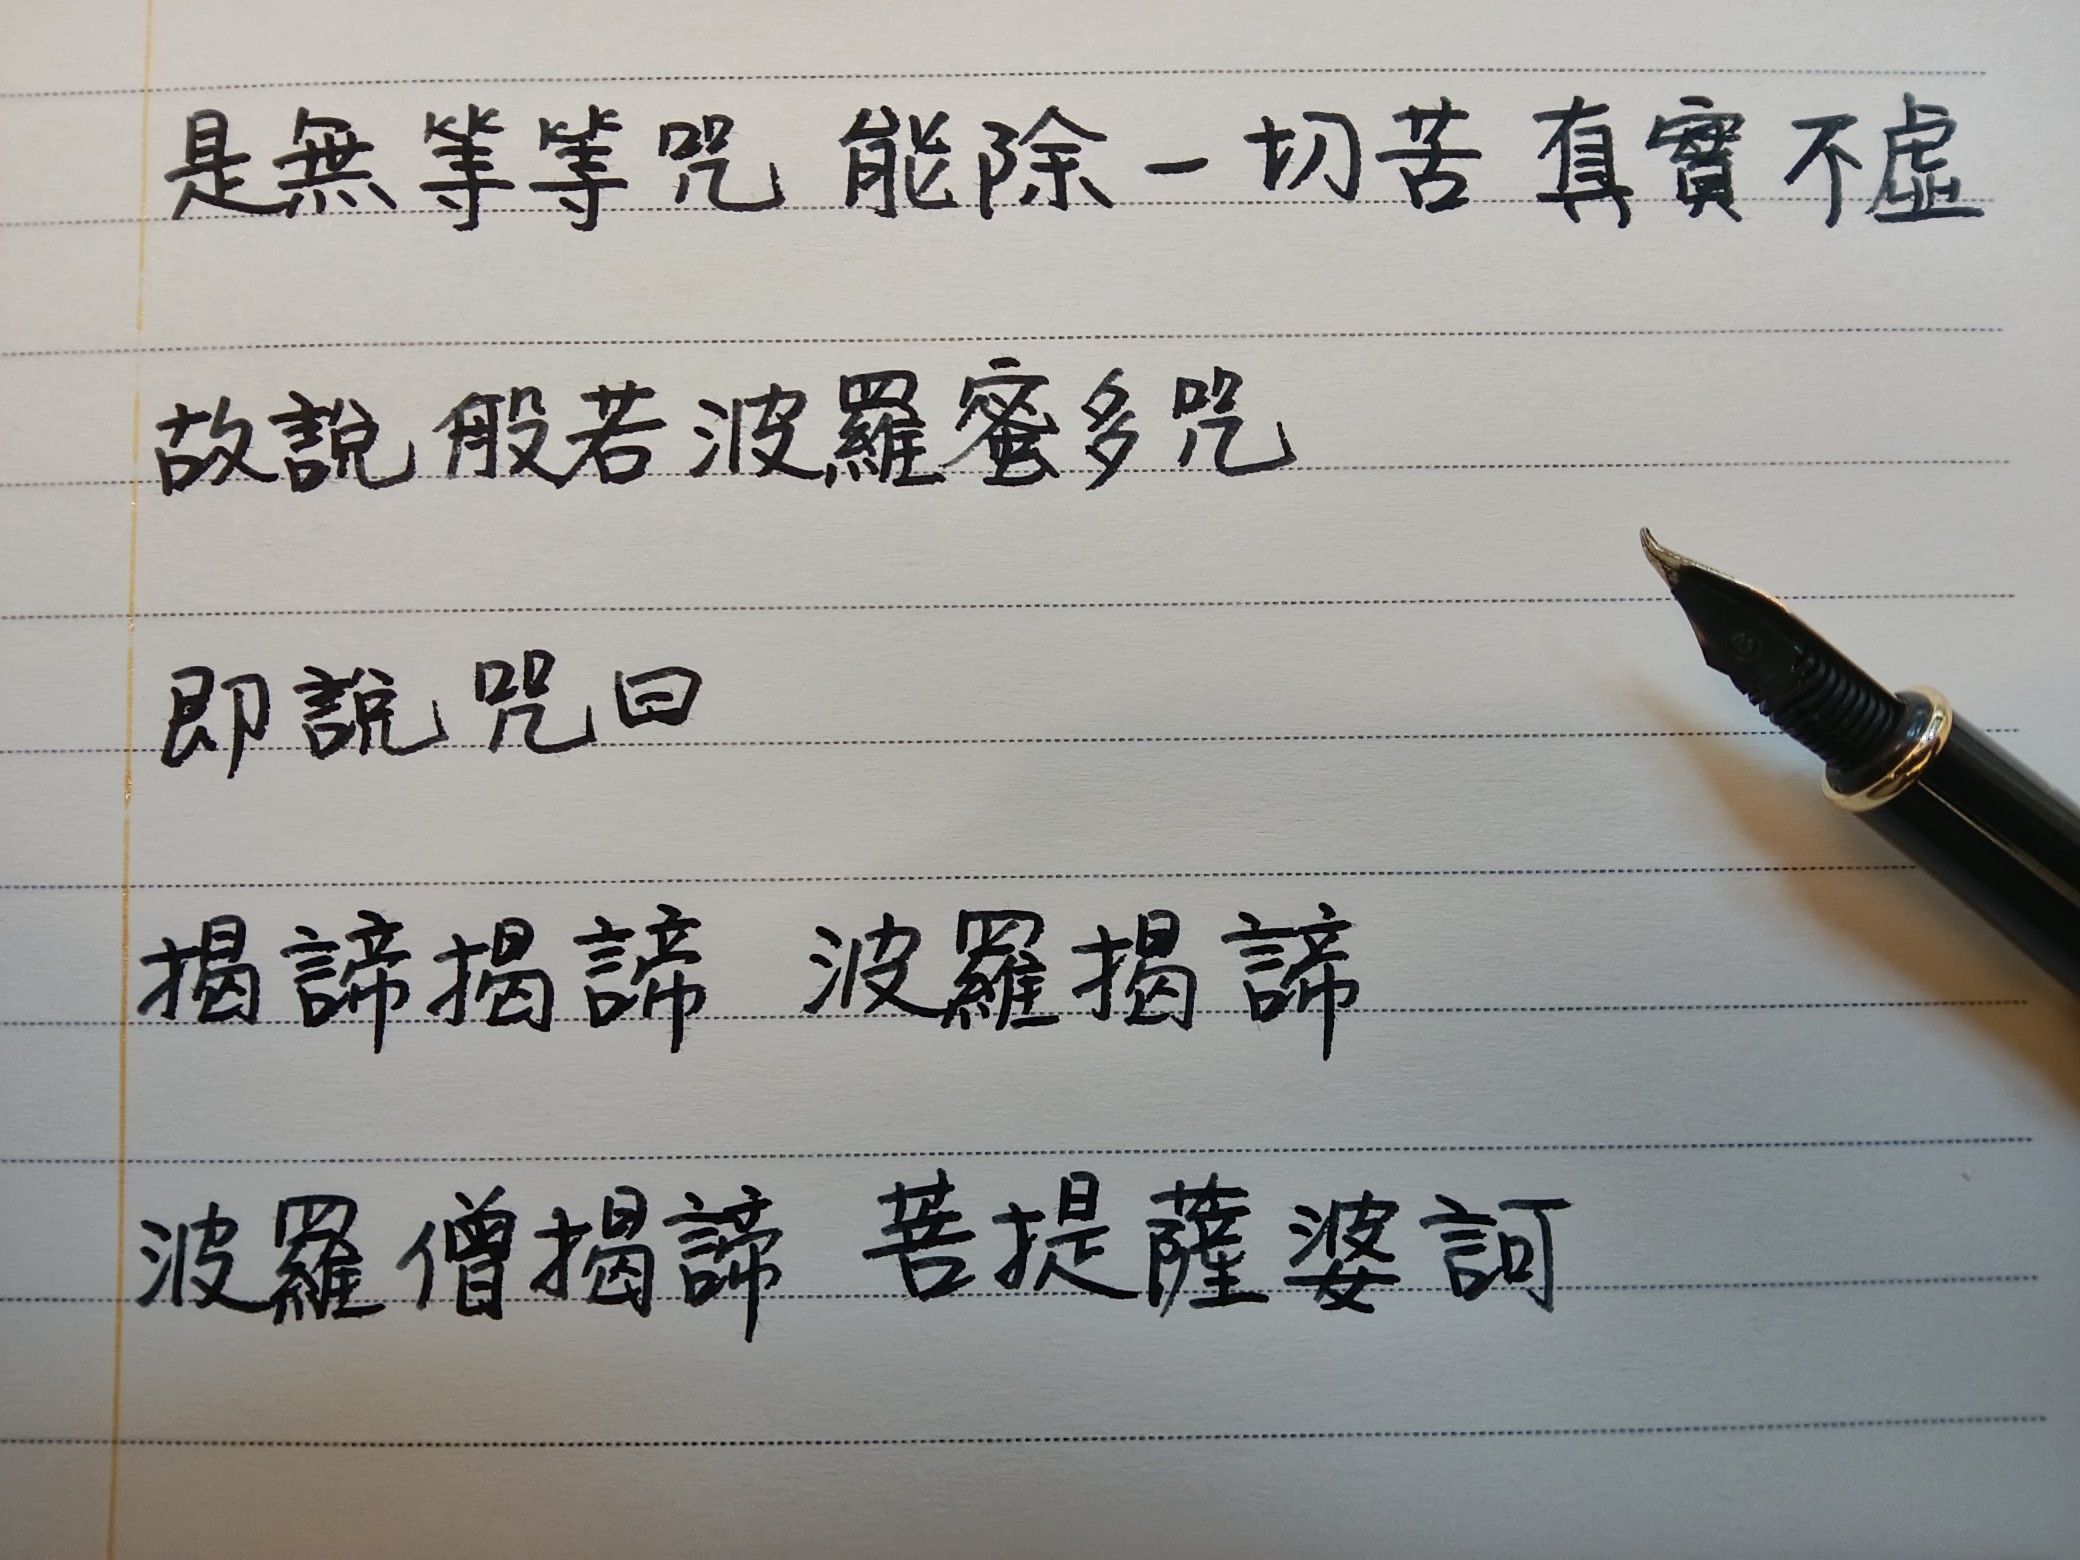 是無等等咒 能除一切苦 真實不虛
故說般若波羅蜜多咒
即說咒曰
揭諦揭諦 波羅揭諦
波羅僧揭諦 菩提薩婆訶